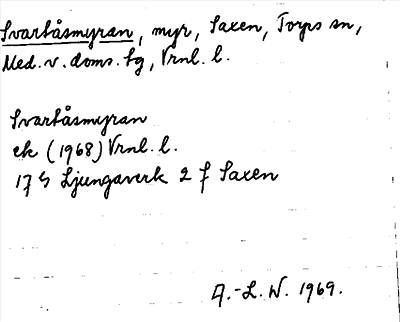 Svartåsmyran, myr, Saxen, Torps sn,
Med. v. doms. sg, Vrnl. l.
Svartåsmyran
ek (1968) Vrnl. l.
17 G Ljungaverk 2 f Saxen
A.-L. W. 1969.